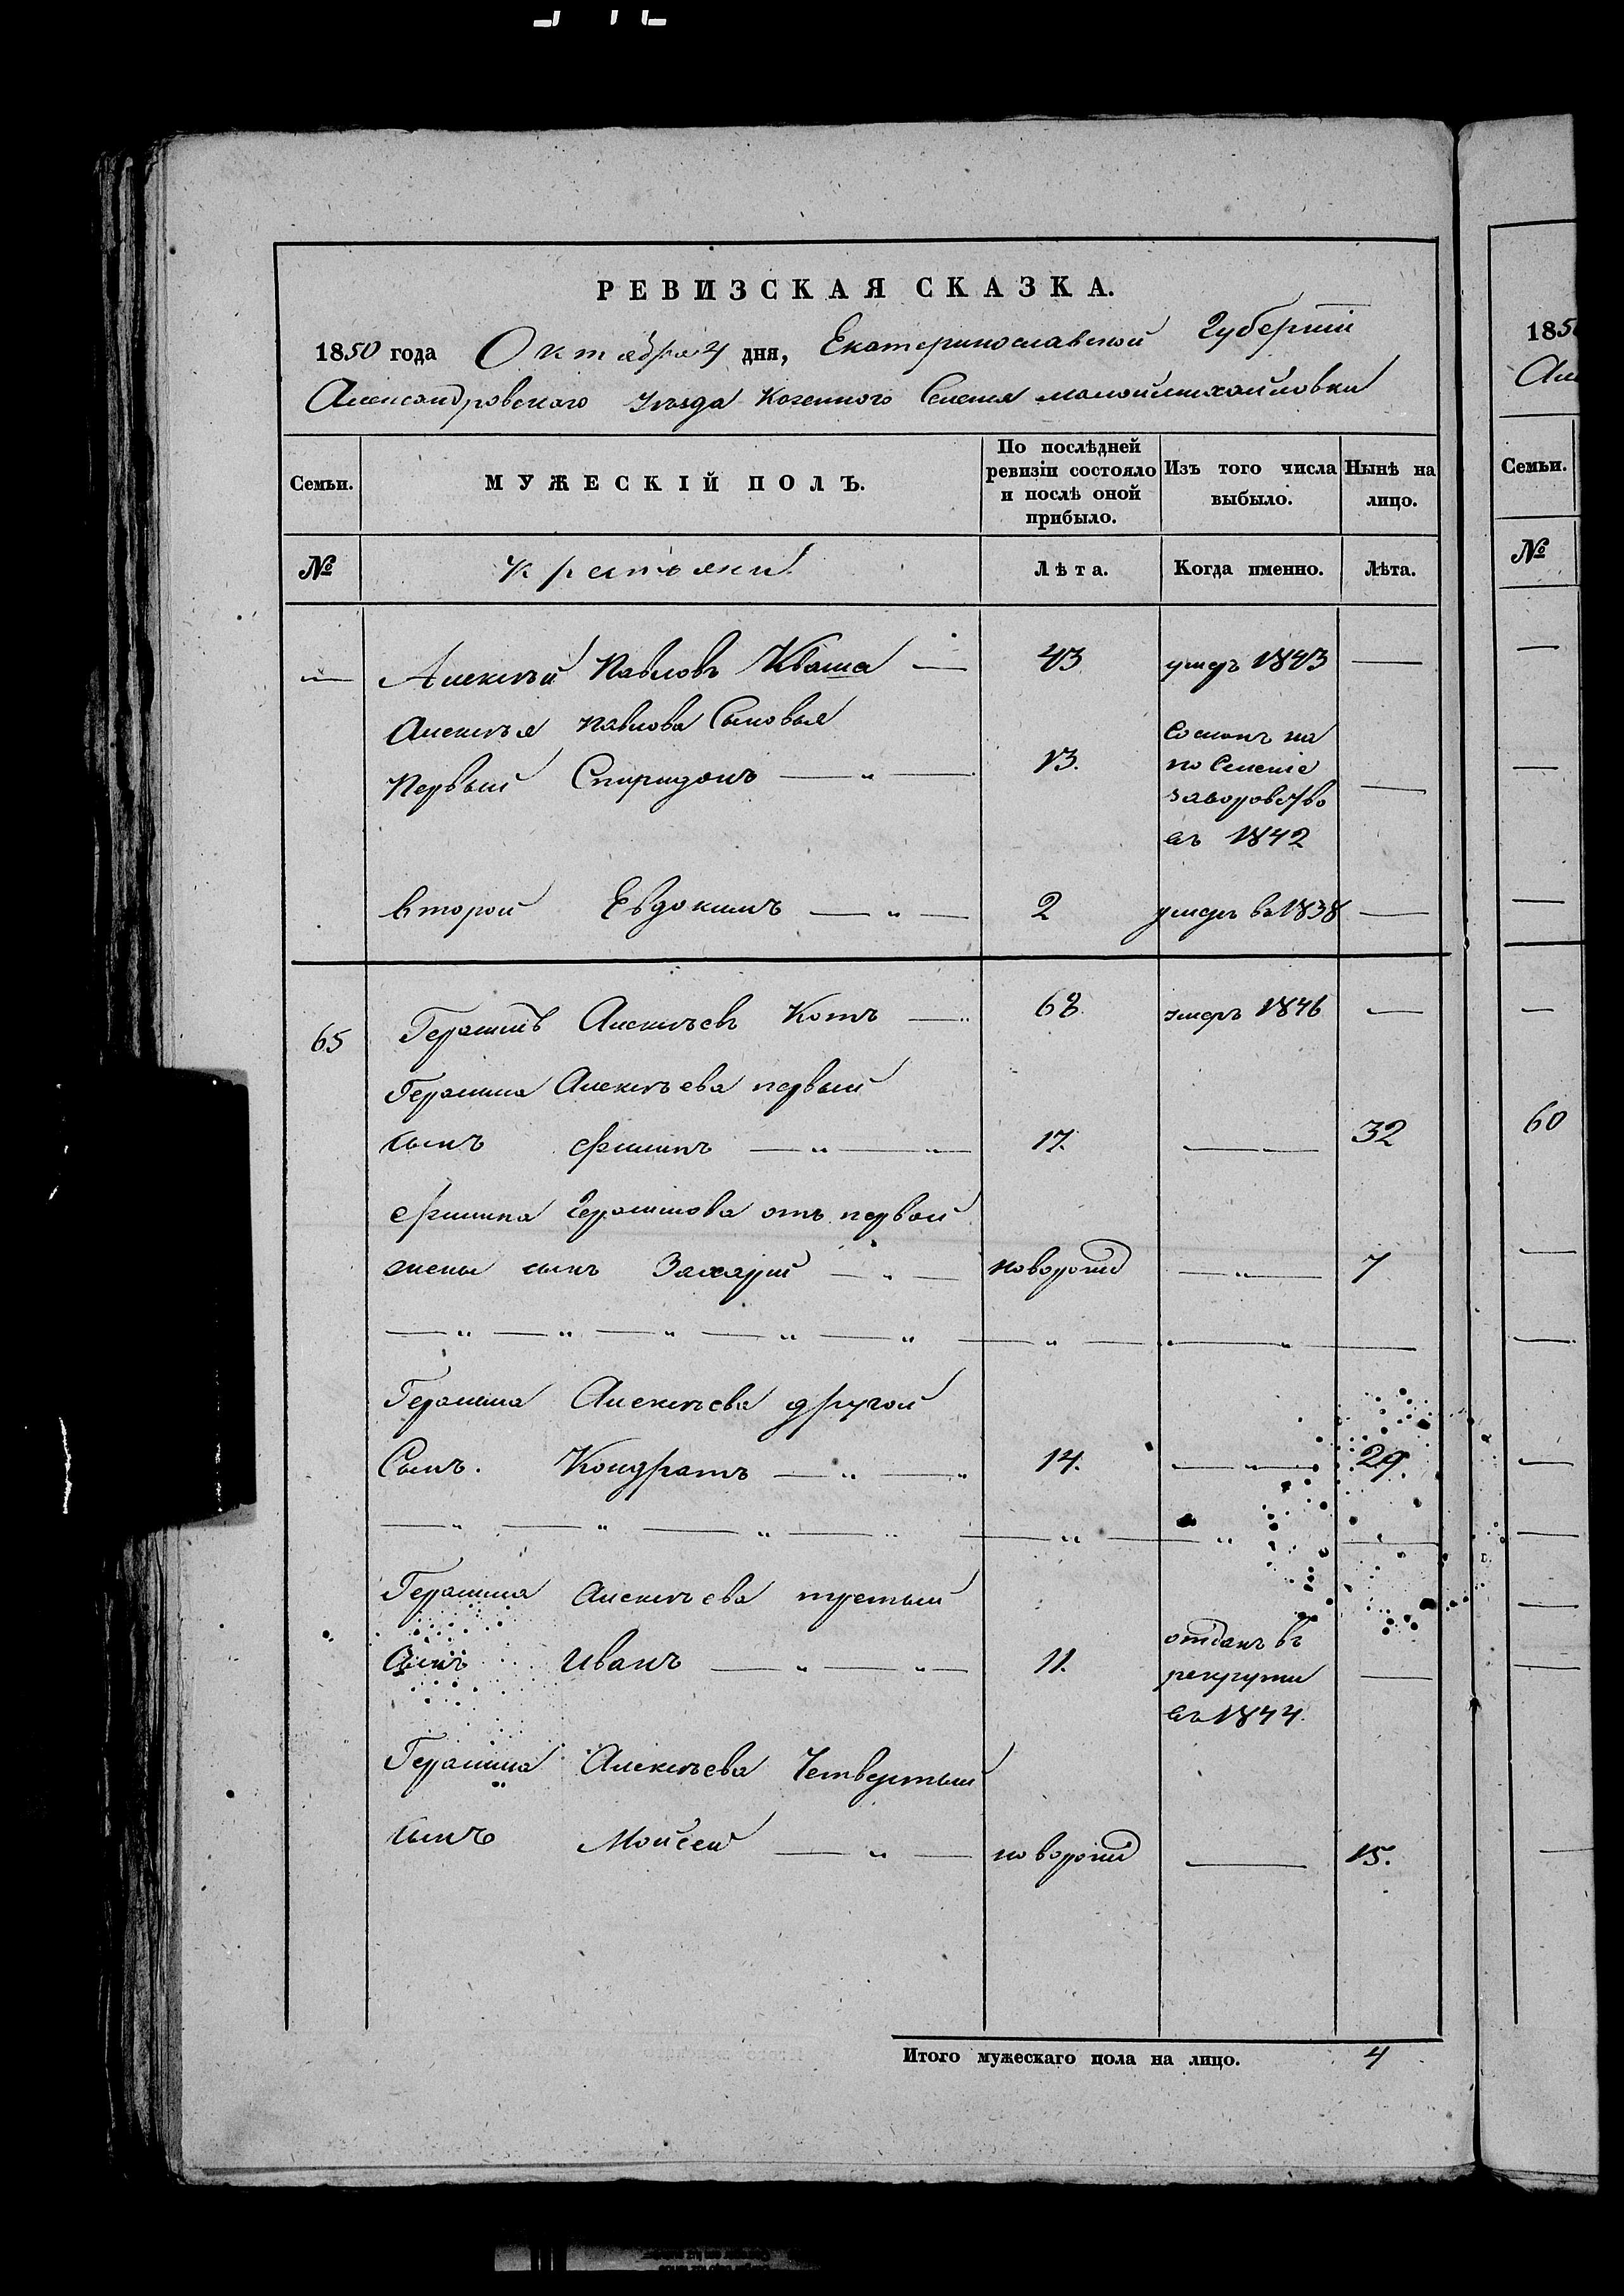 РЕВИЗСКАЯ СКАЗКА.
1850 года Октября 4 дня, Екатеринославской Губернiи
Александровского Уѣзда Козенного Селения малоймихайловки
Семьи.
МУЖЕСКІЙ ПОЛЪ.
По послѣдней ревизіи состояло и послѣ оной прибыло.
Изъ того числа выбыло.
Нынѣ на лицо.
№
крестьяни
Лѣта.
Когда именно.
Лѣта.
— Алексѣй Павловъ Кваша — 43 умеръ 1843 —
Алексѣя Павлова Сыновья
Первый Спиридонъ — „ — 13. Сосланъ на
по Селеніе
заворовство
въ 1842 —
второй Евдокимъ — „ — 2 умеръ въ 1838 —
65 Герасимъ Алексѣевъ Котъ — 68 умеръ 1846 —
Герасима Алексѣева первый
сынъ Филипъ — „ — „ — 17. — 32
Филипа Герасимова отъ первой
жены сынъ Захарий — „ — новорожд — „ — 7
— „ — „ — „ — „ — „ — „ — „ —
Герасима Алексѣева другой
Сынъ. Кондратъ — „ — „ 14. — „ — 29.
— „ — „ — „ — „ — „ — „ —
Герасима Алексѣева третьий
Сынъ Иванъ — „ — „ — 11. отданъ въ
рекруты
въ 1844. —
Герасима Алексѣева Четвертый
сынъ Моисей — „ — новорожд — 15.
Итого мужескаго пола на лицо. 4
185
Ал
Семьи.
№
60